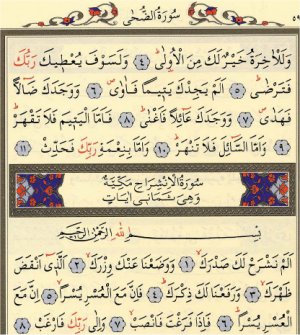 سُورَةُ الضُّحٰى
وَلَلْاٰخِرَةُ خَيْرٌ لَكَ مِنَ الْاُولٰىۜ ﴿٤﴾ وَلَسَوْفَ يُعْطٖيكَ رَبُّكَ
فَتَرْضٰىۜ ﴿٥﴾ اَلَمْ يَجِدْكَ يَتٖيمًا فَاٰوٰىۖ ﴿٦﴾ وَوَجَدَكَ ضَٓالًّا
فَهَدٰىۖ ﴿٧﴾ وَوَجَدَكَ عَٓائِلًا فَاَغْنٰىۜ ﴿٨﴾ فَاَمَّا الْيَتٖيمَ فَلَا تَقْهَرْۜ
﴿٩﴾ وَاَمَّا السَّٓائِلَ فَلَا تَنْهَرْۜ ﴿١٠﴾ وَاَمَّا بِنِعْمَةِ رَبِّكَ فَحَدِّثْ ﴿١١﴾
سُورَةُ الْاِنْشِرَاحِ مَكِّيَّةٌ
وَهِيَ ثَمَانِي اٰيَاتٍ
بِسْمِ اللّٰهِ الرَّحْمٰنِ الرَّحٖيمِ
اَلَمْ نَشْرَحْ لَكَ صَدْرَكَۙ ﴿١﴾ وَوَضَعْنَا عَنْكَ وِزْرَكَۙ ﴿٢﴾ اَلَّذٖٓي اَنْقَضَ
ظَهْرَكَۙ ﴿٣﴾ وَرَفَعْنَا لَكَ ذِكْرَكَۜ ﴿٤﴾ فَاِنَّ مَعَ الْعُسْرِ يُسْرًاۙ ﴿٥﴾ اِنَّ مَعَ
الْعُسْرِ يُسْرًاۜ ﴿٦﴾ فَاِذَا فَرَغْتَ فَانْصَبْۙ ﴿٧﴾ وَاِلٰى رَبِّكَ فَارْغَبْ ﴿٨﴾